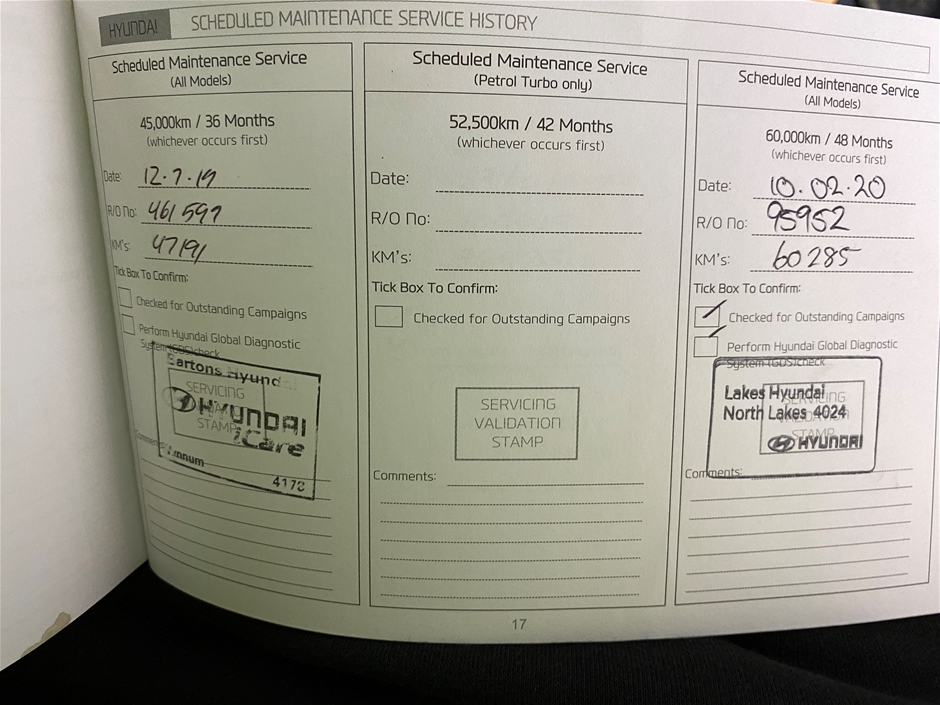 HYUNDAI SCHEDULED MAINTENANCE SERVICE HISTORY
Scheduled Maintenance Service
(All Models)
45,000km / 36 Months
(whichever occurs first)
Date: 12.7.19
R/O No: 461597
KM's: 47191
Tick Box To Confirm:
Checked for Outstanding Campaigns
Perform Hyundai Global Diagnostic
System (GDS)check
Bartons Hyundai
SERVICING
HYUNDAI
STAMP
iCare
Comments:
4178
Scheduled Maintenance Service
(Petrol Turbo only)
52,500km / 42 Months
(whichever occurs first)
Date:
R/O No:
KM's:
Tick Box To Confirm:
Checked for Outstanding Campaigns
SERVICING
VALIDATION
STAMP
Comments:
Scheduled Maintenance Service
(All Models)
60,000km / 48 Months
(whichever occurs first)
Date: 10.02.20
R/O No: 95952
KM's: 60285
Tick Box To Confirm:
Checked for Outstanding Campaigns
Perform Hyundai Global Diagnostic
System (GDS)check
Lakes Hyundai
SERVICING
North Lakes 4024
VALIDATION
STAMP
HYUNDAI
Comments:
17